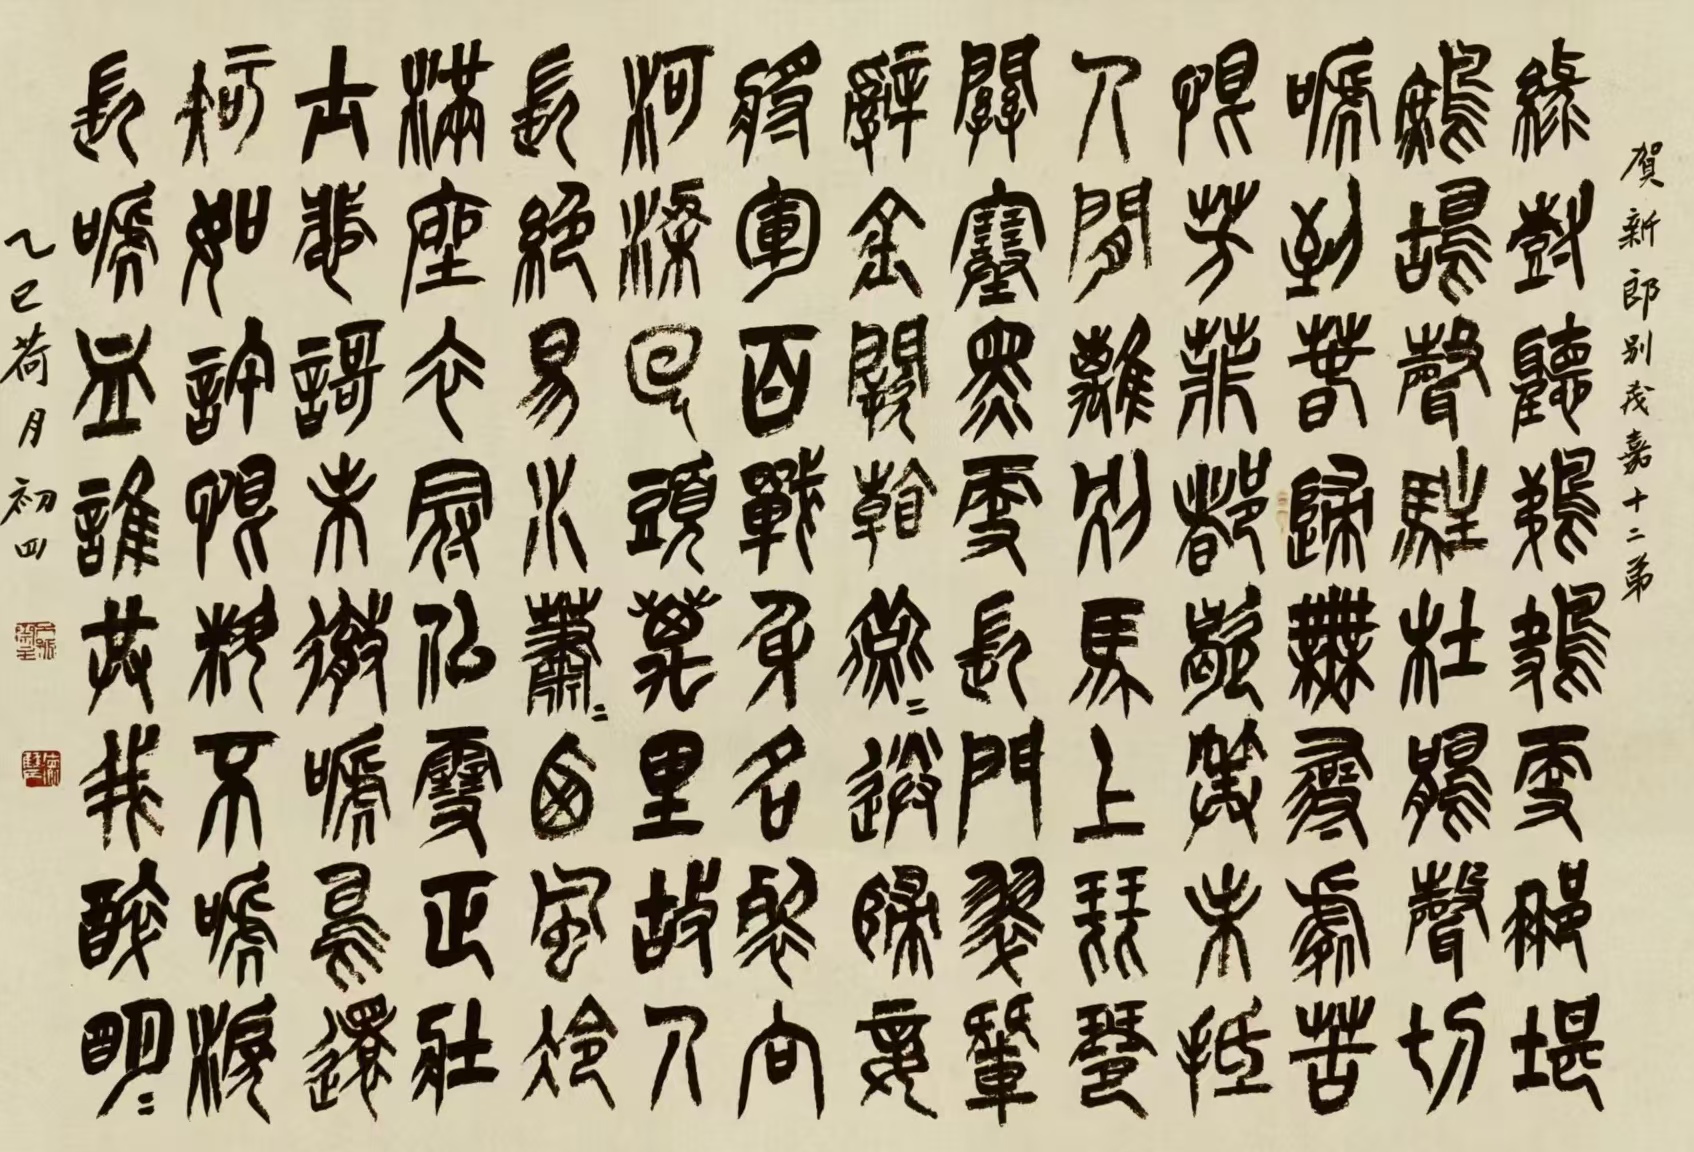 賀新郎别茂嘉十二弟
綠樹聽鵜鴂更那堪
鷓鴣聲駐杜鵑聲切
嗁到春歸無尋處苦
恨芳菲都歇算未抵
人間離別馬上琵琶
關塞黑更長門翠輦
辭金闕看燕〻送歸妾
將軍百戰身名裂向
河梁回頭萬里故人
長絕易水蕭〻西風冷
滿座衣冠似雪正壯
士悲謌未徹嗁鳥還
知如許恨料不嗁淚
長嗁血誰共我醉明〻
乙巳荷月初四